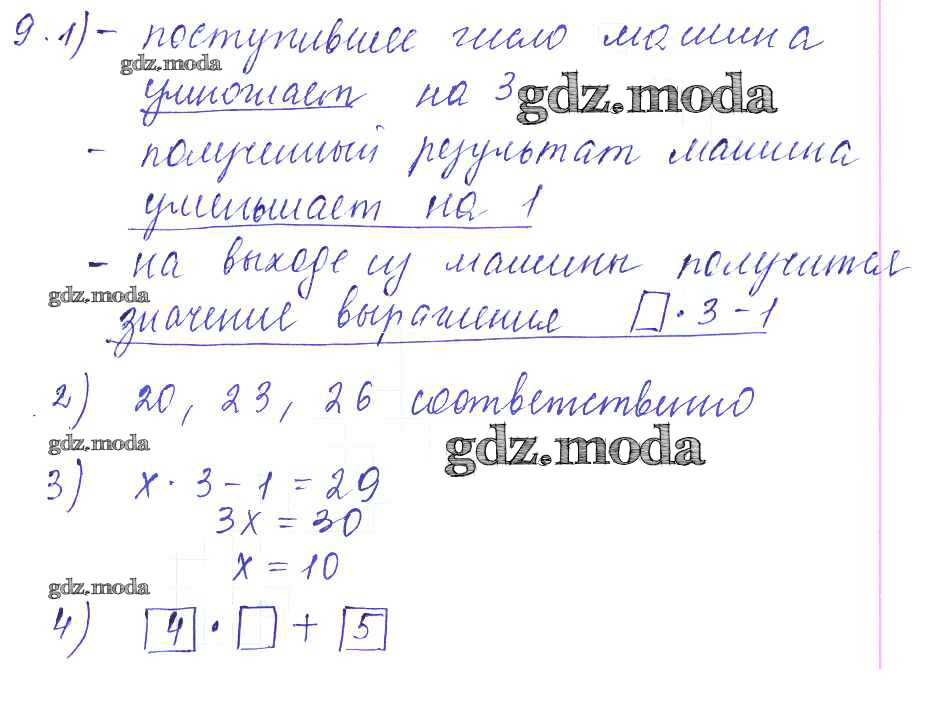 9. 1) - поступившее число машина
gdz.moda
умножает на 3
gdz.moda
- полученный результат машина
уменьшает на 1
- на выходе из машины получится
gdz.moda
значение выражения □ · 3 - 1
2) 20, 23, 26 соответственно
gdz.moda
gdz.moda
3) x · 3 - 1 = 29
3x = 30
x = 10
gdz.moda
4) 4 · □ + 5